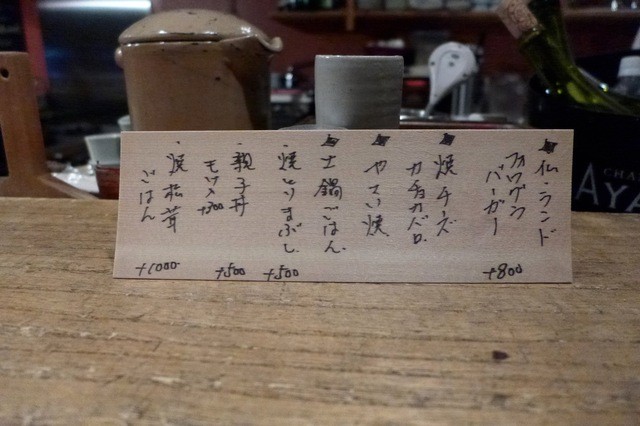 ■仏・ランド
フォワグラ
バーガー
+800
■焼チーズ
カチョカバロ
■やさい焼
■土鍋ごはん
・焼とりまぶし
+500
・親子丼
+500
モツ入+300
・焼松茸
ごはん
+1000
CHA
AYA